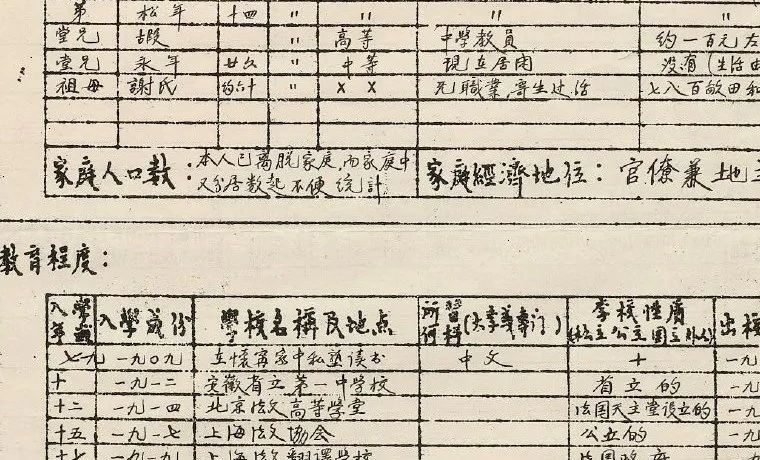 弟 松年 十四 〃 〃 〃 〃
堂兄 嘏 〃 高等 中學教員 約一百元左
堂兄 永年 廿六 〃 中等 現立居闭 没有(生活由
祖母 謝氏 約六十 〃 × × 无職業,寄生过活 七八百畝田和
家庭人口数：本人已离脱家庭,而家庭中
又分居数起不便统計
家庭經濟地位：官僚兼地主
教育程度：
入學年 入學歲份 學校名稱及地点 所習何科(大李義專门) 李校性質(私立公立国立外人)
七九 一九〇九 立懷甯家中私塾读书 中文 十 一九
十 一九一二 安徽省立第一中學校 省立的 一九
十二 一九一四 北京法文高等学堂 法国天主堂设立的 一九
十五 一九一七 上海法文协会 公立的 一九
一九一九 上海法文翻譯学校 法国政府